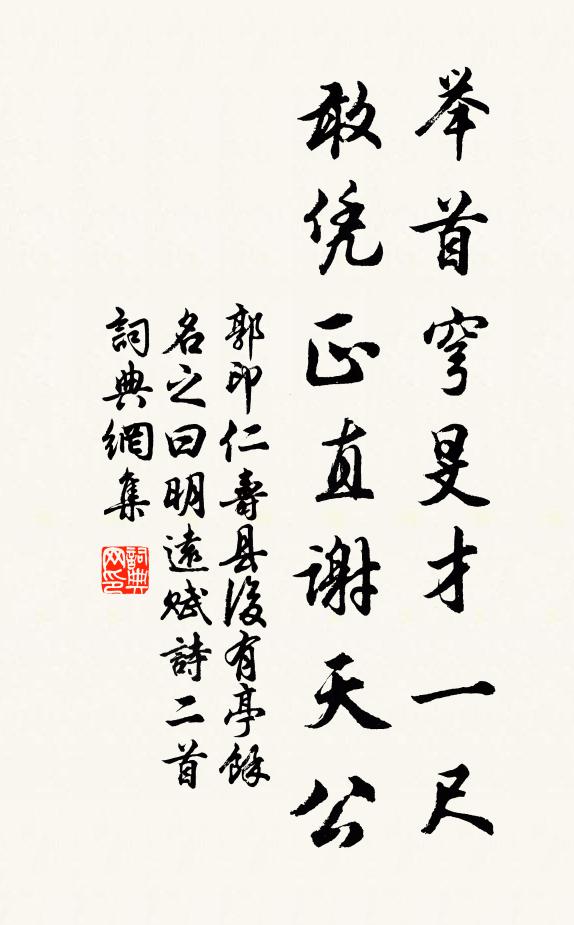 举首穹旻才一尺
敢凭正直谢天公
郭印仁壽县後有亭餘
名之曰明遠赋詩二首
詞典網集
詞典网印